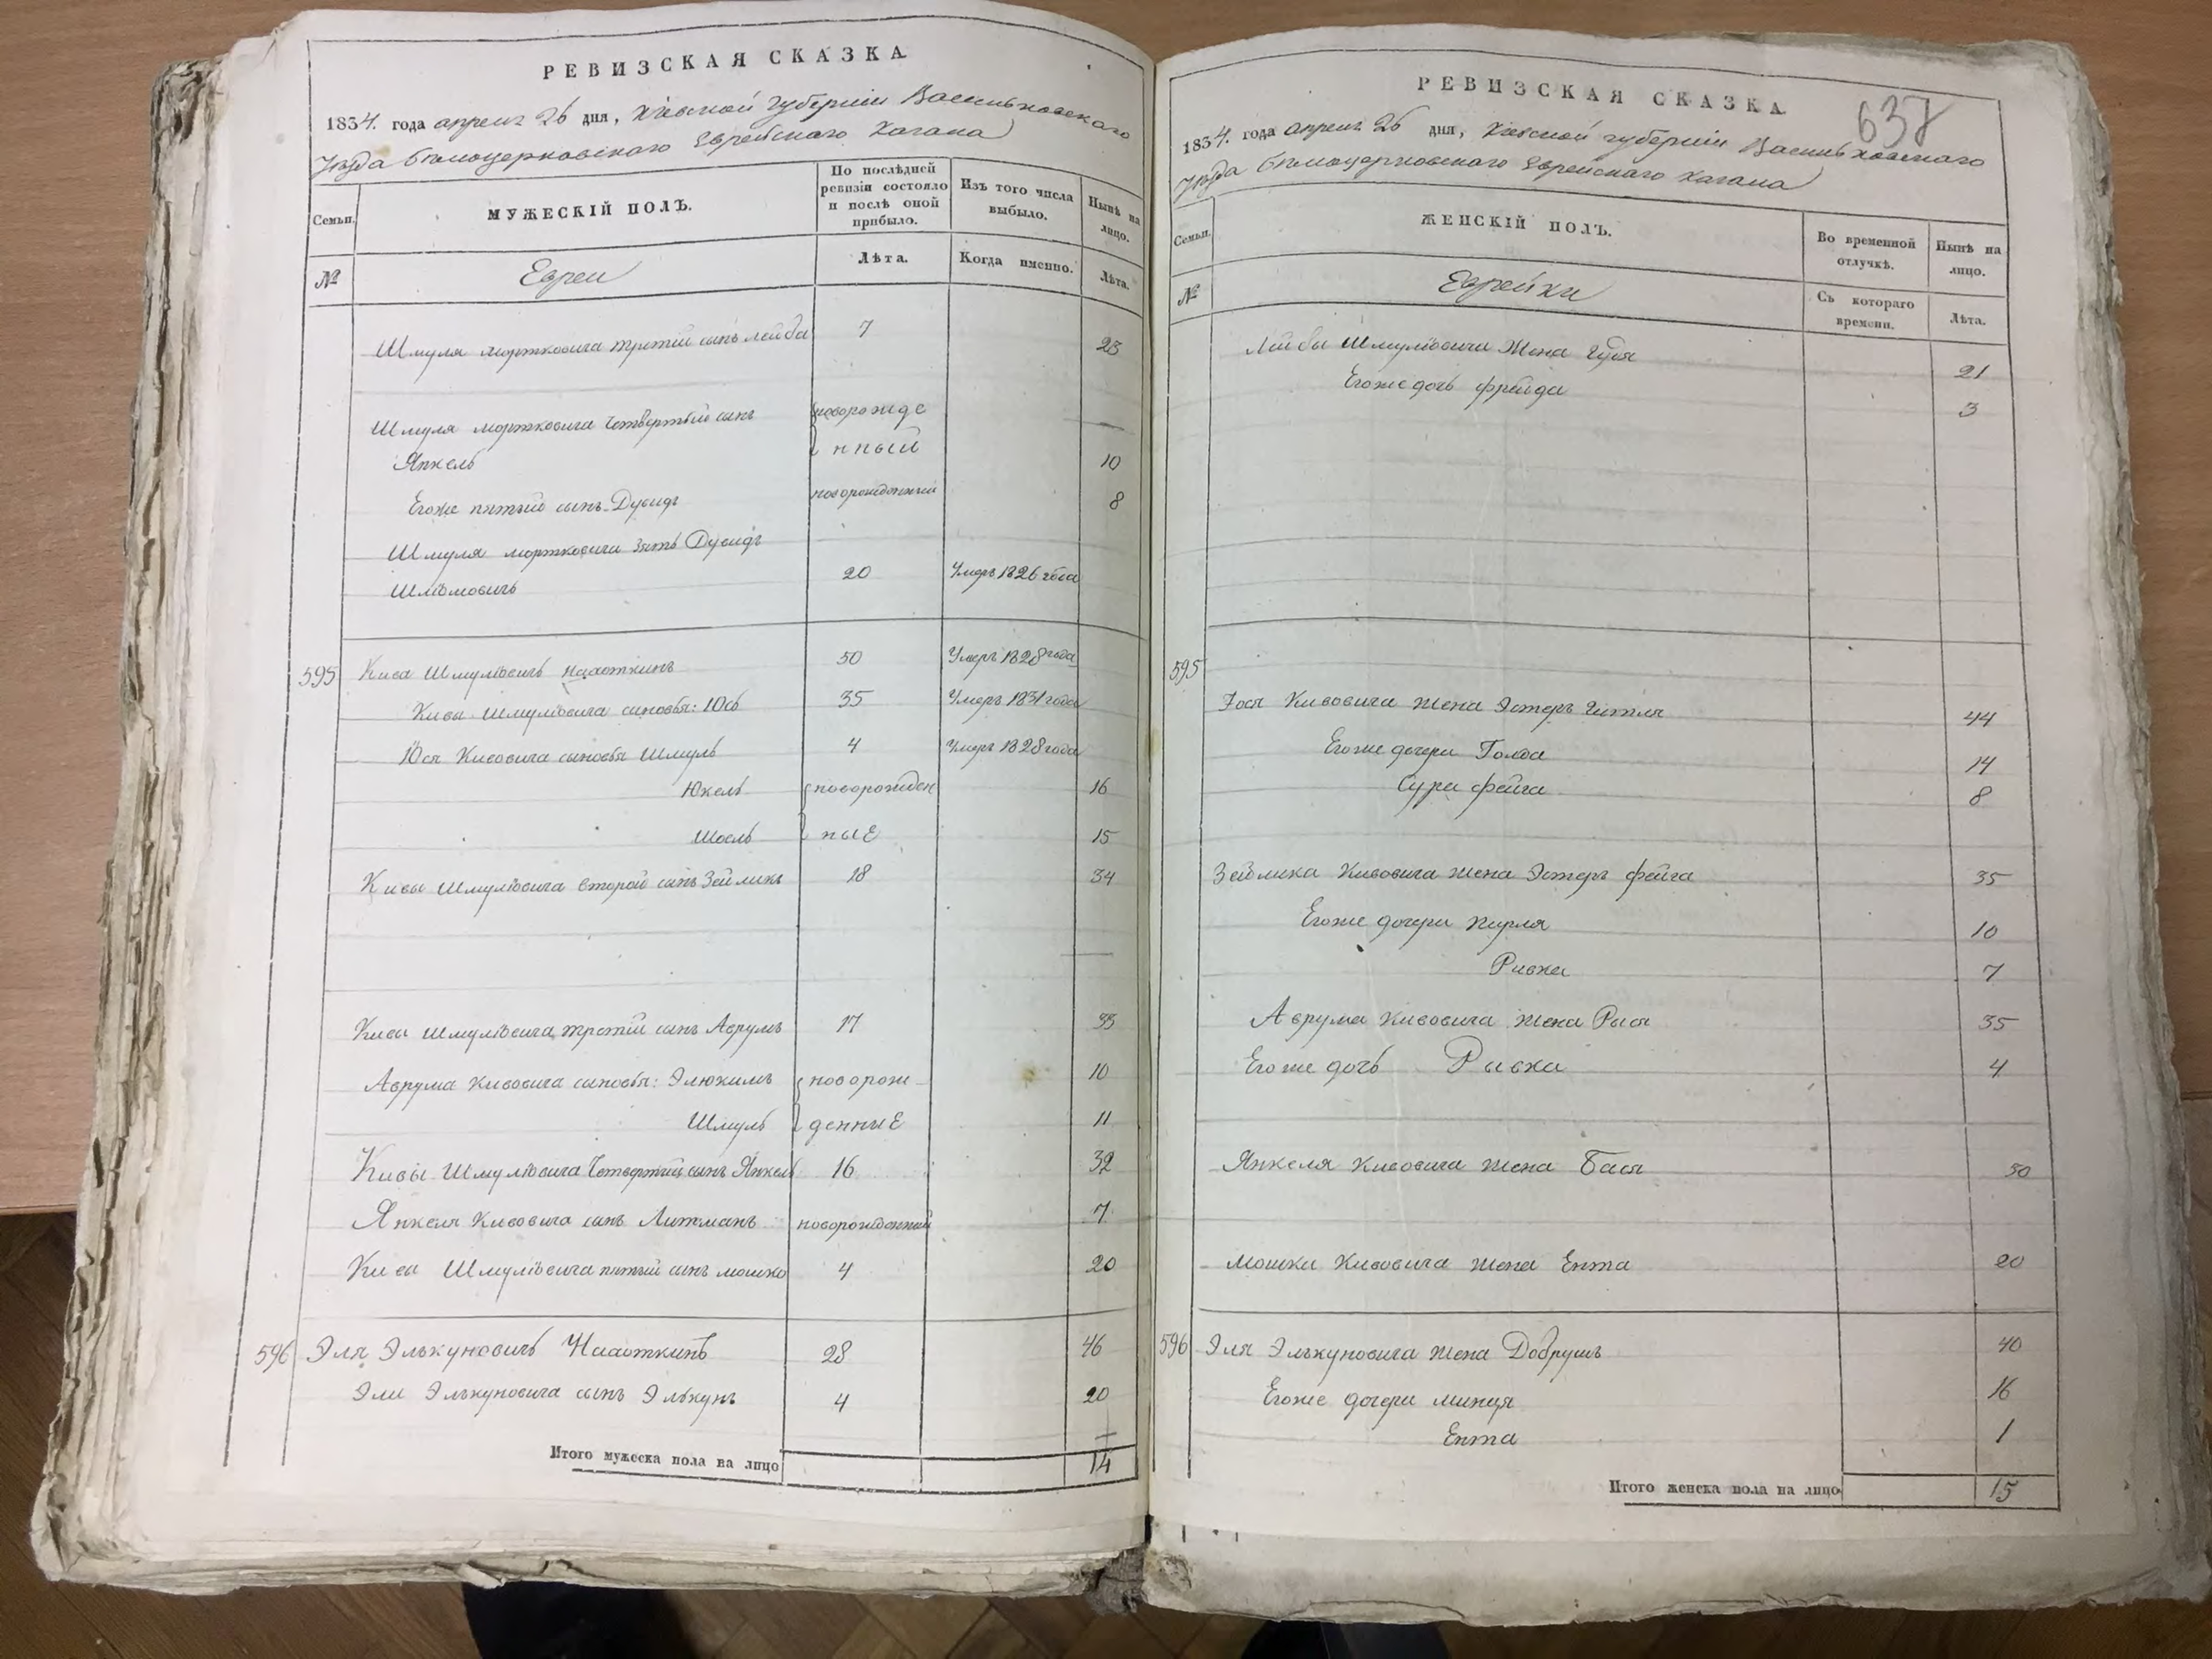 РЕВИЗСКАЯ СКАЗКА
1834. года апреля 26 дня, Кіевской губерніи Васильковского
Уезда белоцерковского Еврейского Кагала
Семьи.
МУЖЕСКІЙ ПОЛЪ.
По последней ревизіи состояло и после оной прибыло.
Изъ того числа выбыло.
Ныне на лицо.
№
Евреи
Лѣта.
Когда именно.
Лѣта.
Шмуля мортковича третій сынъ лейба 7 23
Шмуля мортковича Четвертый сынъ новорожде
Янкель нный 10
Егоже пятый сынъ Дувидъ новорожденный 8
Шмуля мортковича зять Дувидъ
Шлиомовичъ 20 Умеръ 1826 года
595 Кива Шмулiовичъ 50 Умеръ 1828 года
Кивы Шмулiовича сыновья: Юсь 35 Умеръ 1831 года
Юся Кивовича сыновья Шмуль 4 Умеръ 1828 года
Юкель новорожден 16
Шоель ные 15
Кивы Шмулiовича второй сынъ Зейликъ 18 34
Кивы Шмулiовича третій сынъ Аврумъ 17 33
Аврума Кивовича сыновья: Элюкимъ новорож 10
Шмуль денные 11
Кивы Шмулiовича Четвертый сынъ Янкель 16 32
Янкеля Кивовича сынъ Литманъ новорожденный 7
Кивы Шмулiовича пятый сынъ мошко 4 20
596 Эля Элькуновичъ 28 46
Эли Элькуновича сынъ Элькунъ 4 20
Итого мужеска пола на лицо 14
637
РЕВИЗСКАЯ СКАЗКА
1834. года апреля 26 дня, Кіевской губерніи Васильковского
Уезда белоцерковского Еврейского Кагала
Семьи.
ЖЕНСКІЙ ПОЛЪ.
Во временной отлучкѣ.
Нынѣ на лицо.
№
Еврейки
Съ котораго времени.
Лѣта.
Лейбы Шмулiовича Жена Гудя 21
Егоже дочь фрейда 3
595
Юся Кивовича жена Эстеръ Гитля 44
Егоже дочери Голда 14
Сура фейга 8
Зейлика Кивовича жена Эстеръ фейга 35
Егоже дочери перля 10
Ривка 7
Аврума Кивовича жена Рыся 35
Егоже дочь Рывка 4
Янкеля Кивовича жена Бася 30
Мошки Кивовича жена Ента 20
596 Эля Элькуновича жена Добрушъ 40
Егоже дочери минця 16
Ента 1
Итого женска пола на лицо 15